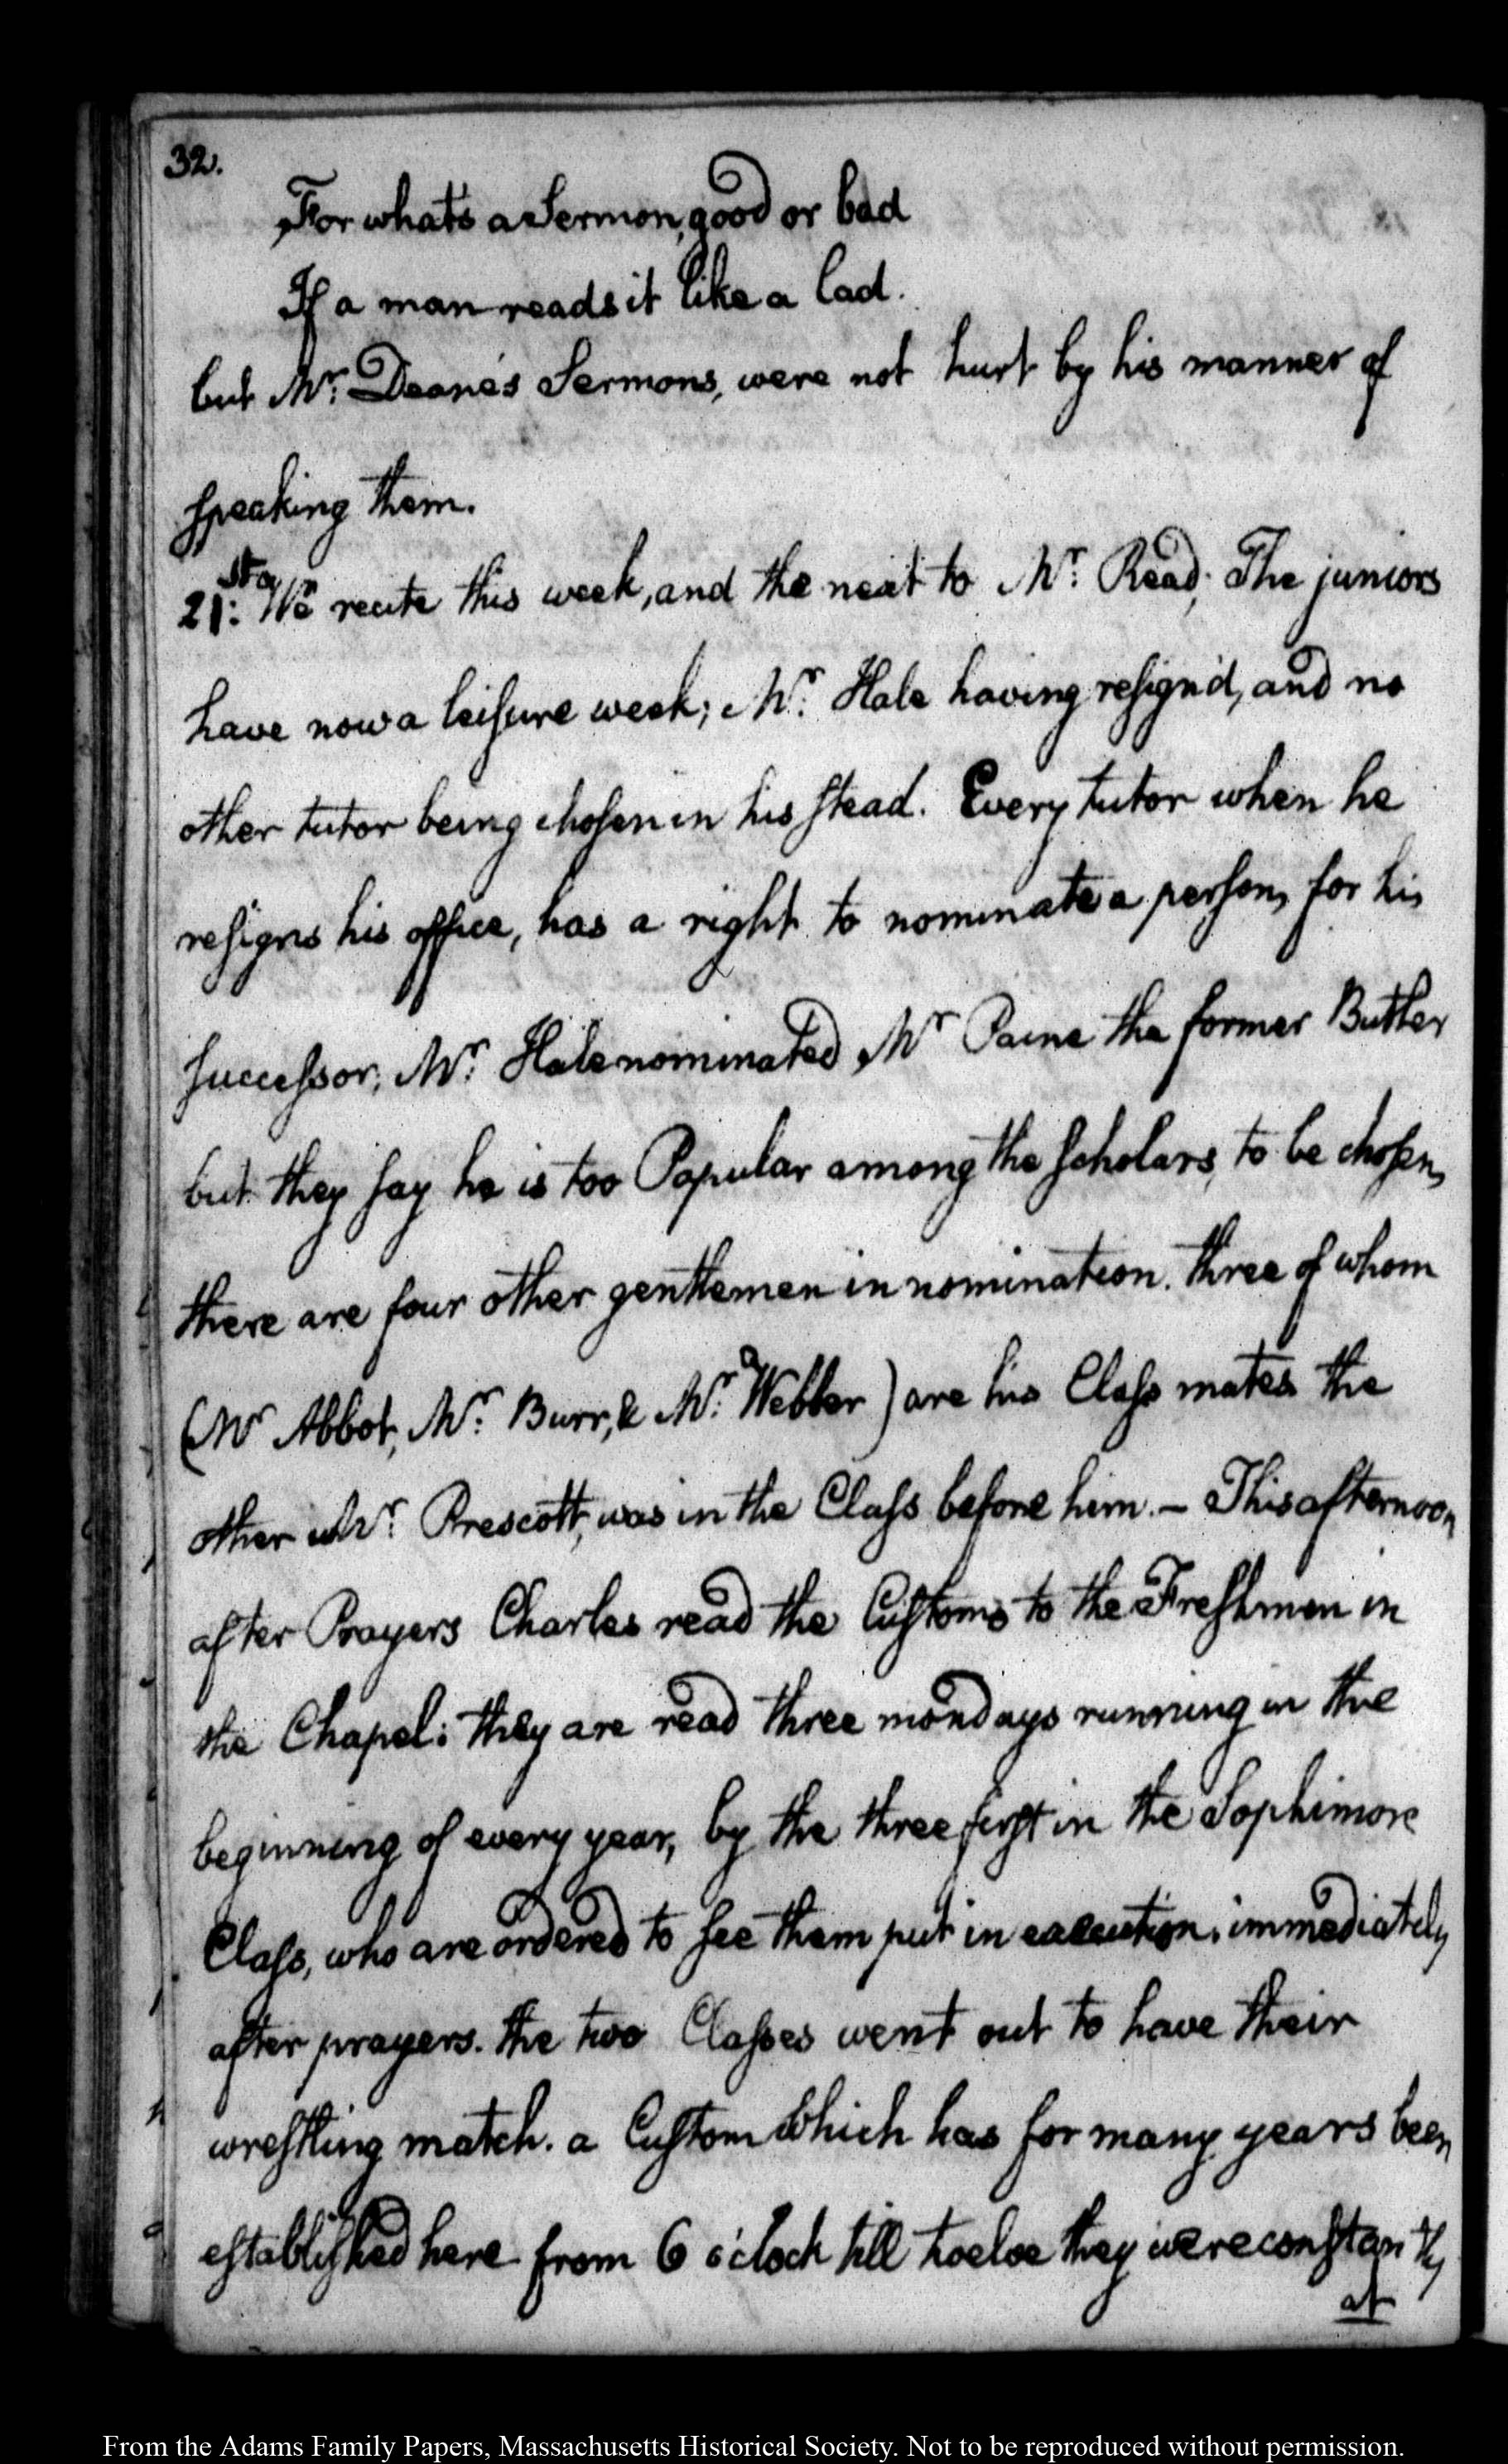 32.
For whats a Sermon, good or bad
If a man reads it like a lad.
but Mr. Deane's Sermons, were not hurt by his manner of
speaking them.
21st. We recite this week, and the next to Mr. Read; The juniors
have now a leisure week; Mr. Hale having resign'd, and no
other tutor being chosen in his stead. Every tutor when he
resigns his office, has a right to nominate a person, for his
successor; Mr. Hale nominated Mr Paine the former Butler
but they say he is too Popular among the scholars, to be chosen,
there are four other gentlemen in nomination. three of whom
(Mr Abbot, Mr. Burr, & Mr. Webber) are his Class mates the
other Mr. Prescott, was in the Class before him. — This afternoon
after Prayers Charles read the Customs to the Freshmen in
the Chapel: they are read three mondays running in the
beginning of every year, by the three first in the Sophimore
Class, who are ordered to see them put in execution. immediately
after prayers. the two Classes went out to have their
wrestling match. a Custom which has for many years been
established here from 6 o'clock till twelve they were constantly
at
From the Adams Family Papers, Massachusetts Historical Society. Not to be reproduced without permission.